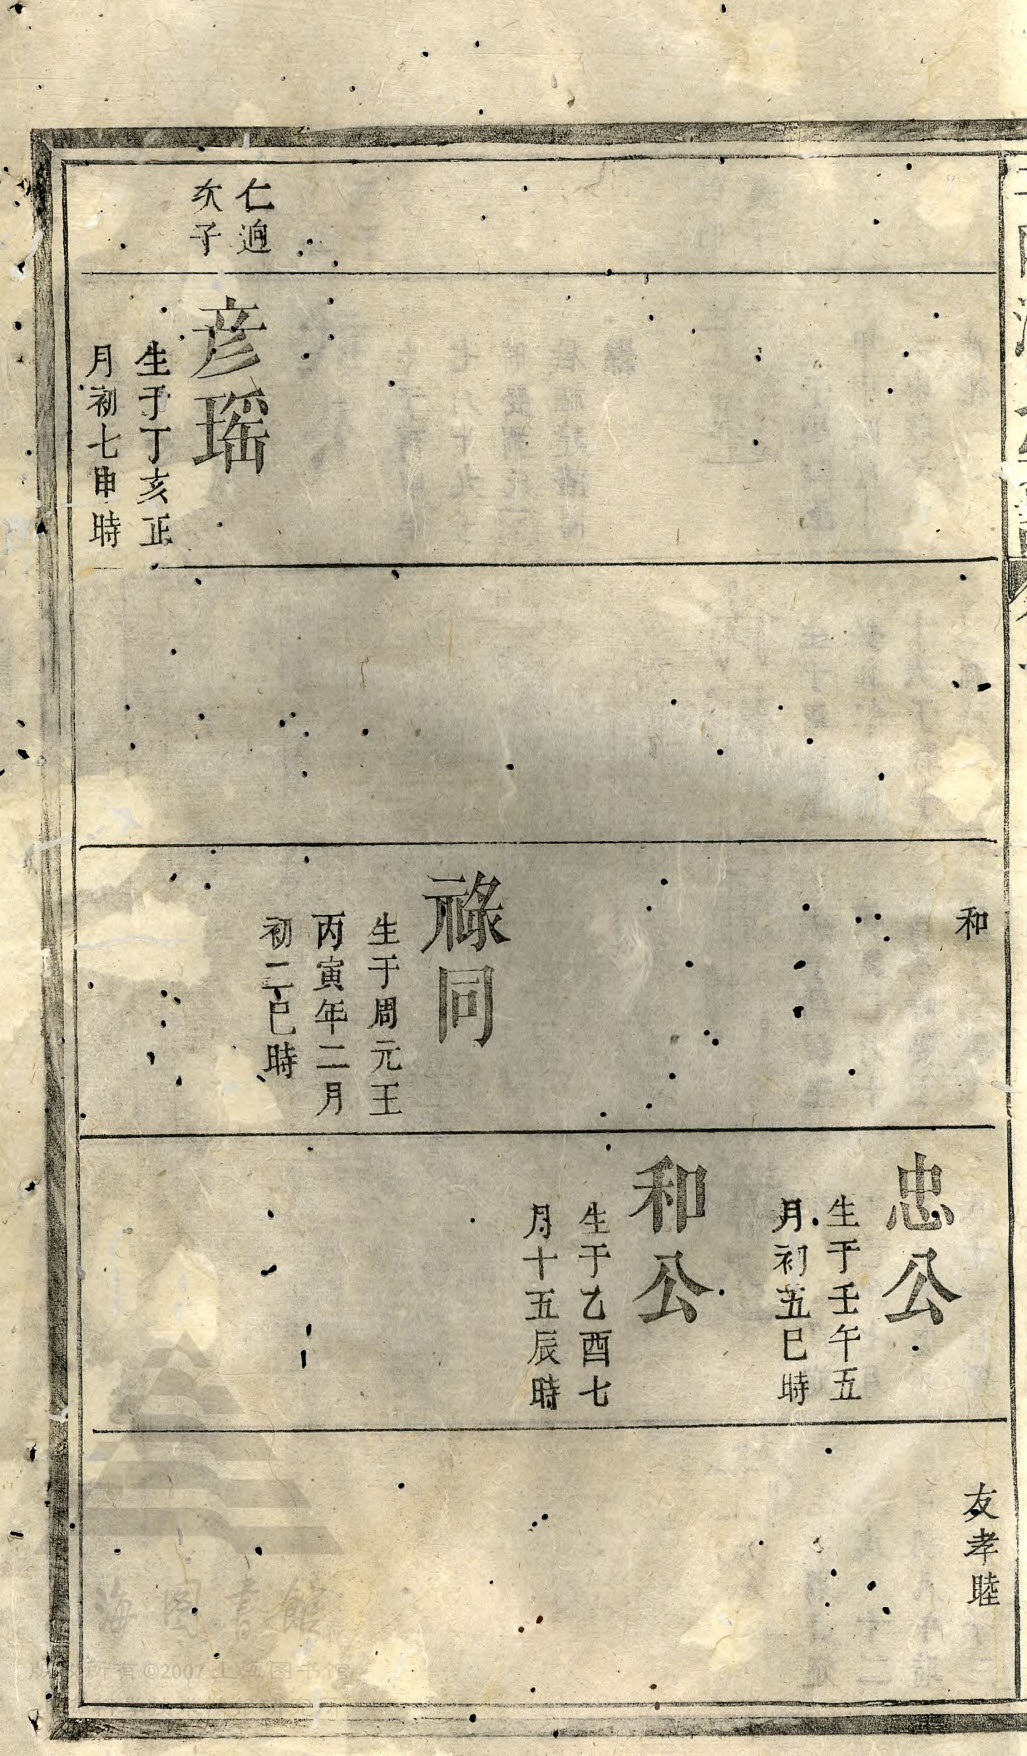 和
友孝睦
忠公
生于壬午五
月初五巳時
和公
生于乙酉七
月十五辰時
祿同
生于周元王
丙寅年二月
初二巳時
仁迵
次子
彦瑶
生于丁亥正
月初七申時
海图書館
版权所有©2007上海图书馆